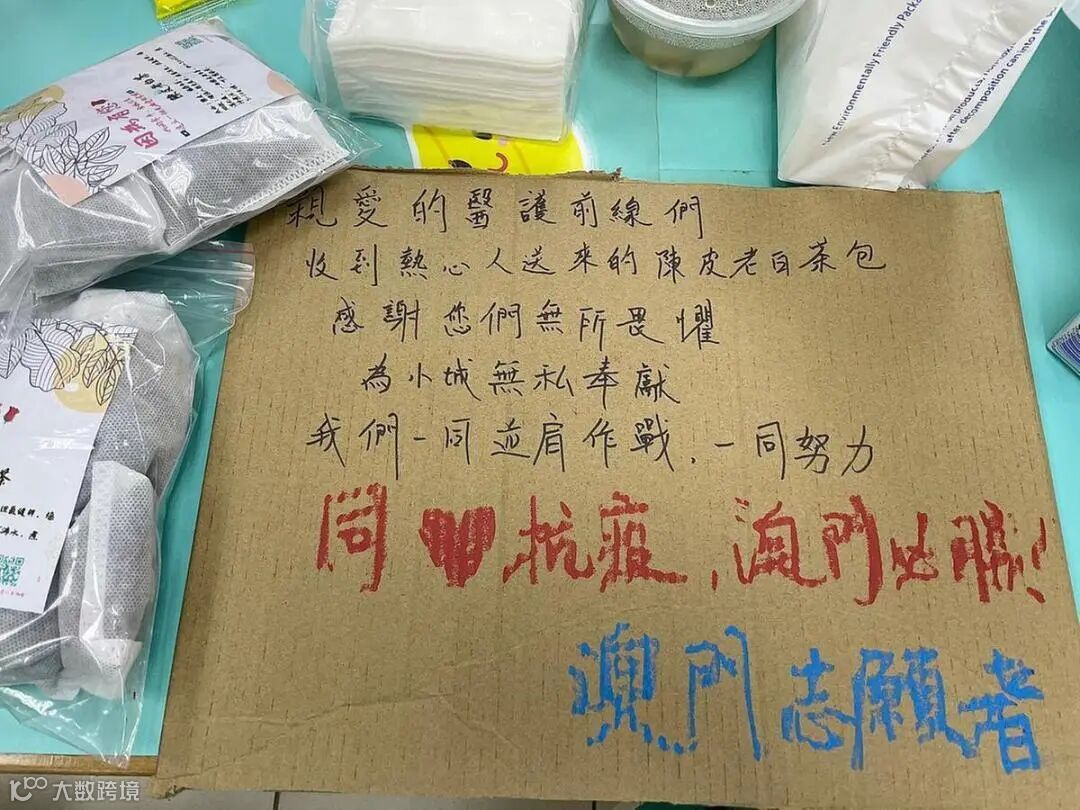 New Environmentally Friendly
after decomposition can into the
因為有您
親愛的醫護前線們
收到熱心人送來的陳皮老白茶包
感謝您們無所畏懼
為小城無私奉獻
我們一同並肩作戰,一同努力
同❤抗疫,澳門必勝!
澳門志願者
茶
大数跨境